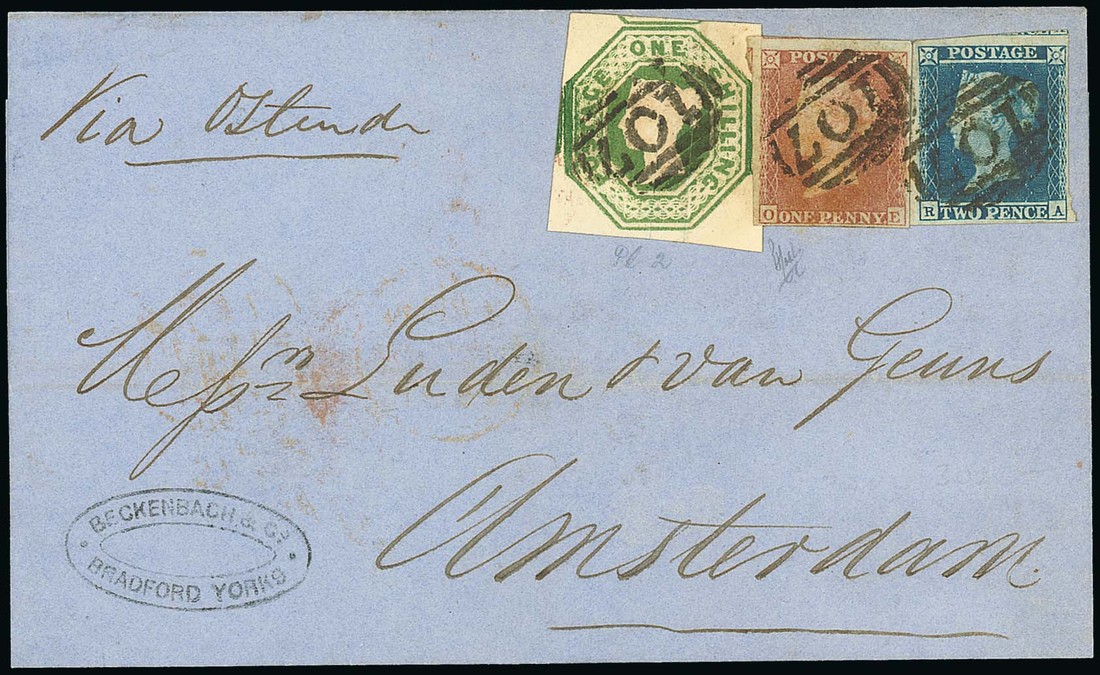 Via Ostende
POSTAGE ONE SHILLING
107
107
O ONE PENNY E
POSTAGE
107
R TWO PENCE A
Messrs Luden & van Geuns
Amsterdam
BECKENBACH & Co
BRADFORD YORKS